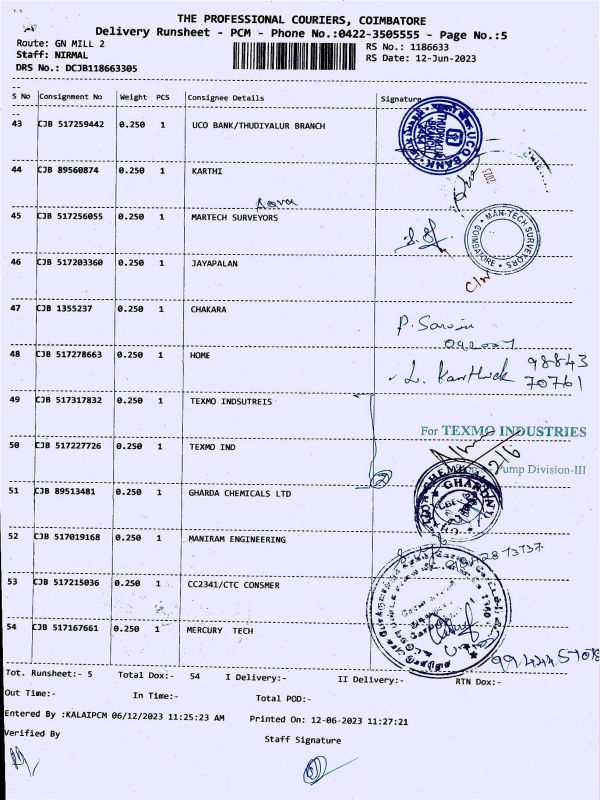 THE PROFESSIONAL COURIERS, COIMBATORE
Delivery Runsheet - PCM - Phone No.:0422-3505555 - Page No.:5
Route: GN MILL 2
RS No.: 1186633
Staff: NIRMAL
RS Date: 12-Jun-2023
DRS No.: DCJB118663305
S No Consignment No Weight PCS Consignee Details Signature
43 CJB 517259442 0.250 1 UCO BANK/THUDIYALUR BRANCH
UCO BANK
44 CJB 89560874 0.250 1 KARTHI
45 CJB 517256055 0.250 1 MARTECH SURVEYORS
MAR-TECH SURVEYORS
COIMBATORE
46 CJB 517203360 0.250 1 JAYAPALAN
47 CJB 1355237 0.250 1 CHAKARA
48 CJB 517278663 0.250 1 HOME
L. Karthick 98843
70761
49 CJB 517317832 0.250 1 TEXMO INDSUTREIS
For TEXMO INDUSTRIES
50 CJB 517227726 0.250 1 TEXMO IND
Pump Division-III
51 CJB 89513481 0.250 1 GHARDA CHEMICALS LTD
52 CJB 517019168 0.250 1 MANIRAM ENGINEERING
53 CJB 517215036 0.250 1 CC2341/CTC CONSMER
54 CJB 517167661 0.250 1 MERCURY TECH
Tot. Runsheet:- 5 Total Dox:- 54 I Delivery:- II Delivery:- RTN Dox:-
Out Time:- In Time:- Total POD:-
Entered By :KALAIPCM 06/12/2023 11:25:23 AM Printed On: 12-06-2023 11:27:21
Verified By
Staff Signature